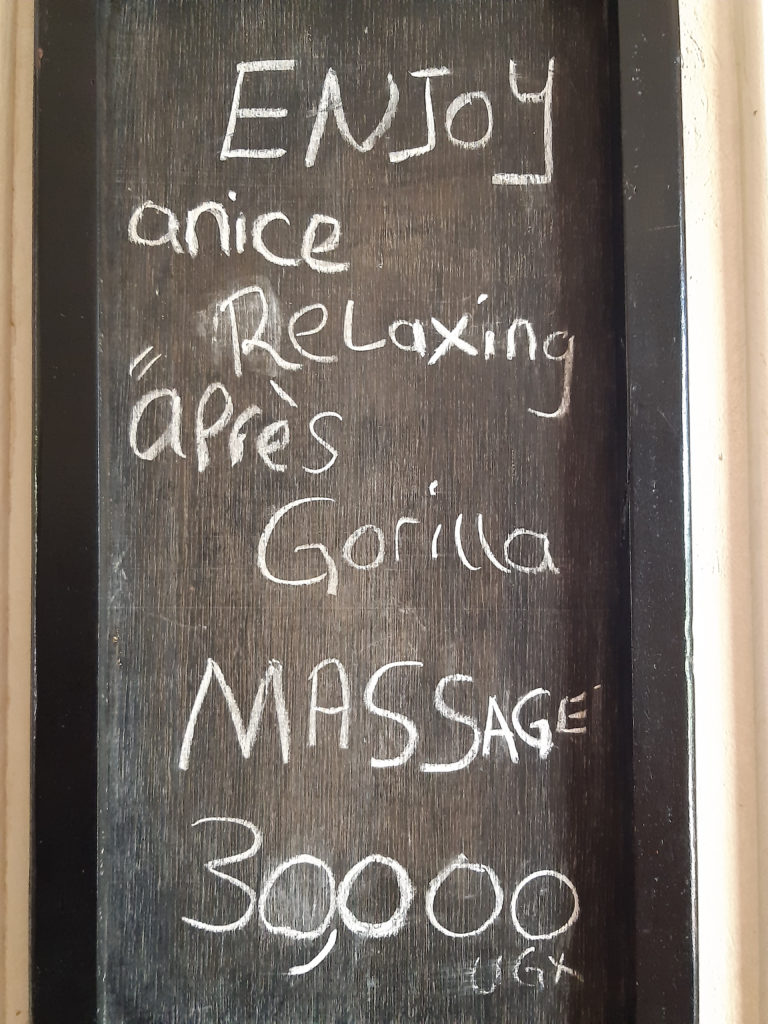 ENJOY
anice
Relaxing
"après
Gorilla
MASSAGE
30,000
UGX